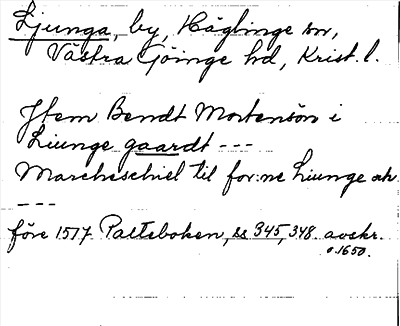 Ljunga, by, Häglinge sn,
Västra Göinge hd, Krist. l.
Jtem Bendt Mortensön i
Liunge gaardt ---
Marcheschiel til for:ne Liunge ak
---
före 1517 Palteboken, ss 345, 348. avskr.
o. 1650.